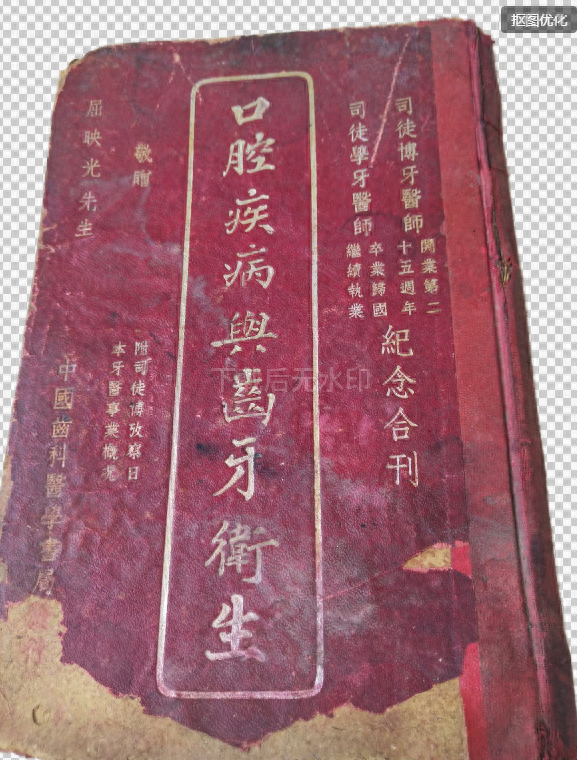 抠图优化
司徒博牙醫師
開業第二
十五週年
司徒學牙醫師
卒業歸國
繼續執業
紀念合刊
口腔疾病與齒牙衛生
下载后无水印
敬贈
屈映光先生
附司徒博攷察日
本牙醫事業概況
中國齒科醫學書局